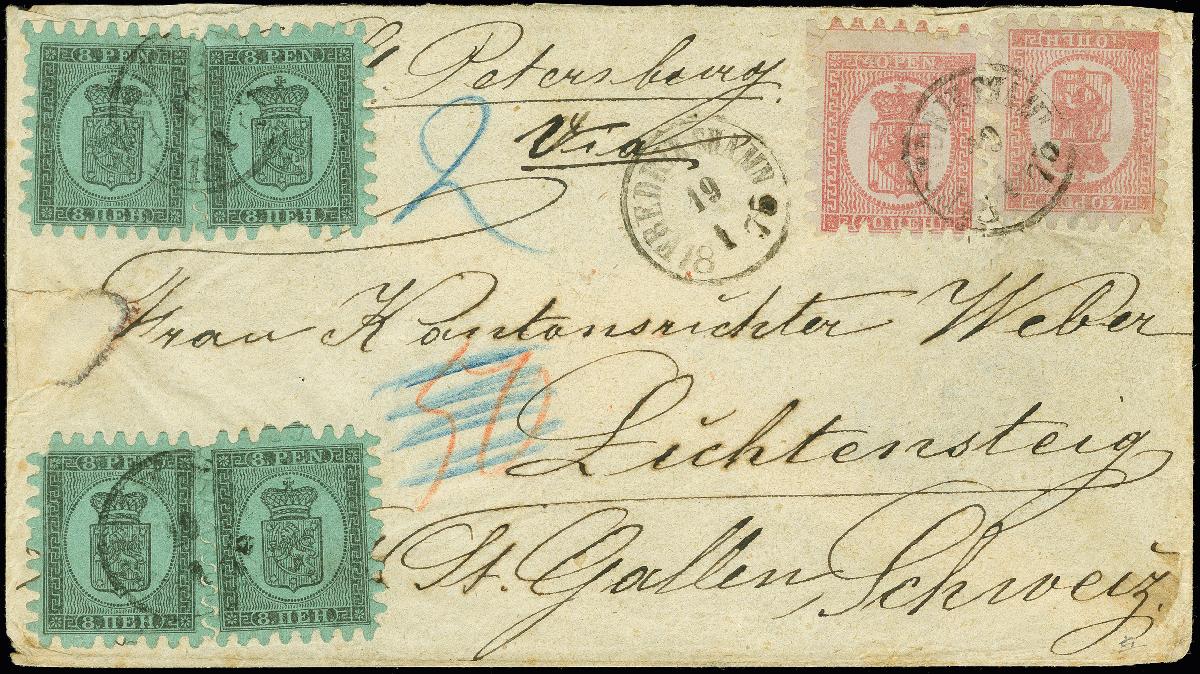 8 PEN 8 PEN
8 ПЕН 8 ПЕН
St. Petersburg.
Via
40 PEN 40 PEN
40 ПЕН 40 ПЕН
19
1
18 75
Frau Kantonsrichter Weber
50
Lichtensteig
8 PEN 8 PEN
8 ПЕН 8 ПЕН
St. Gallen, Schweiz.